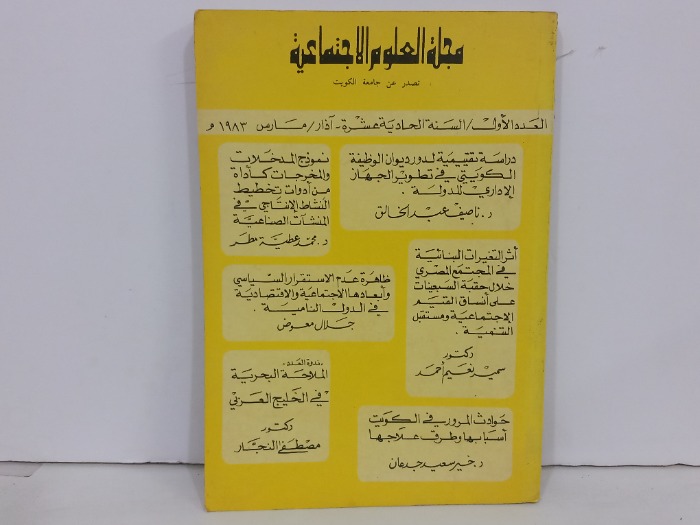 مجلة العلوم الاجتماعية
تصدر عن جامعة الكويت
العدد الأول/السنة الحادية عشرة - آذار/مارس ١٩٨٣ م
دراسة تقييمية لدور ديوان الوظيفة
الكويتي في تطوير الجهاز
الإداري للدولة .
د. ناصيف عبد الخالق
نموذج المدخلات
والمخرجات كأداة
من أدوات تخطيط
النشاط الإنتاجي في
المنشآت الصناعية
د. محمد عطية مطر
أثر التغيرات البنائية
في المجتمع المصري
خلال حقبة السبعينات
على أنساق القيم
الاجتماعية ومستقبل
التنمية .
دكتور
سمير نعيم أحمد
ظاهرة عدم الاستقرار السياسي
وأبعادها الاجتماعية والاقتصادية
في الدول النامية .
جلال معوض
ندوة العدد
الملاحة البحرية
في الخليج العربي
دكتور
مصطفى النجار
حوادث المرور في الكويت
أسبابها وطرق علاجها
د. خير سعيد جدعان